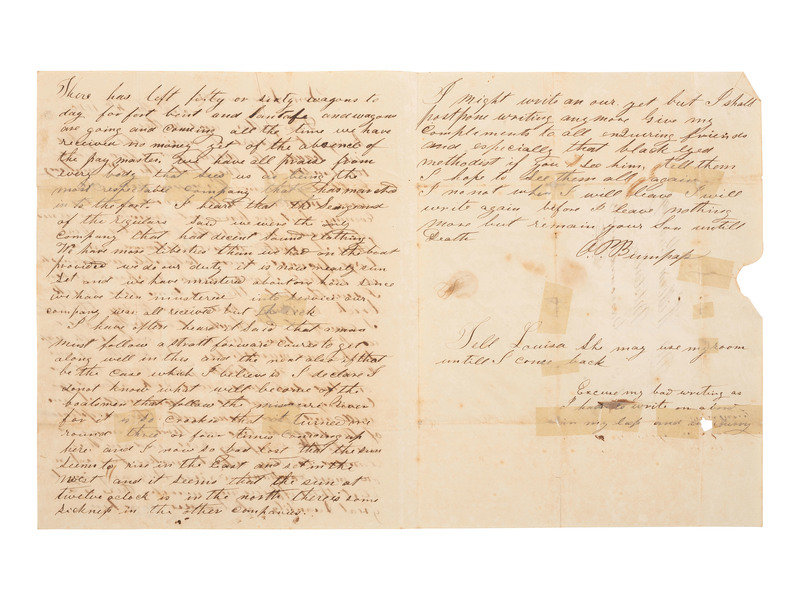 There has left forty or sixty wagons to
day for fort bent and Santafe and wagons
are going and comeing all the time we have
received no money yet of the absence of
the pay master we have all praise from
every body that sees us as being the
most respectable company that has marched
in to the forts I heard that the
of the regulars said we were the only
company that had decent sound clothing
We have more liberties than we had on the boat
provided we do our duty it is now nearly sun
set and we have mustered about one hour since
we have been mustered into service our
company was all received but the
I have often heard it said that a man
must follow a strait forward course to get
along well in this and the next also if that
be the case which I believe is I declare I
donot know what will become of the
boatmen that follow the missouri river
for it is so crooked that it turned me
round three or four times comeing up
here and I now so bad lost that the sun
seems to rise in the East and set in the
West and it seems that the sun at
twelve oclock is in the north there is some
sickness in the other companies
I might write an our yet but I shall
postpone writing any more give my
complements to all enquring friends
and especially that black eyed
methodist if you see him, tell them
I hope to see them all again
I no not when I will leave I will
write again before I leave nothing
more but remain your Son untill
Death
A. P. Bumpass
Tell Louisa she may use my room
untill I come back
Excuse my bad writing as
I had to write on a
in my lap and in